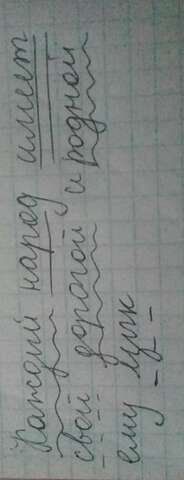 Каждый народ имеет
свой дорогой и родной
ему язык